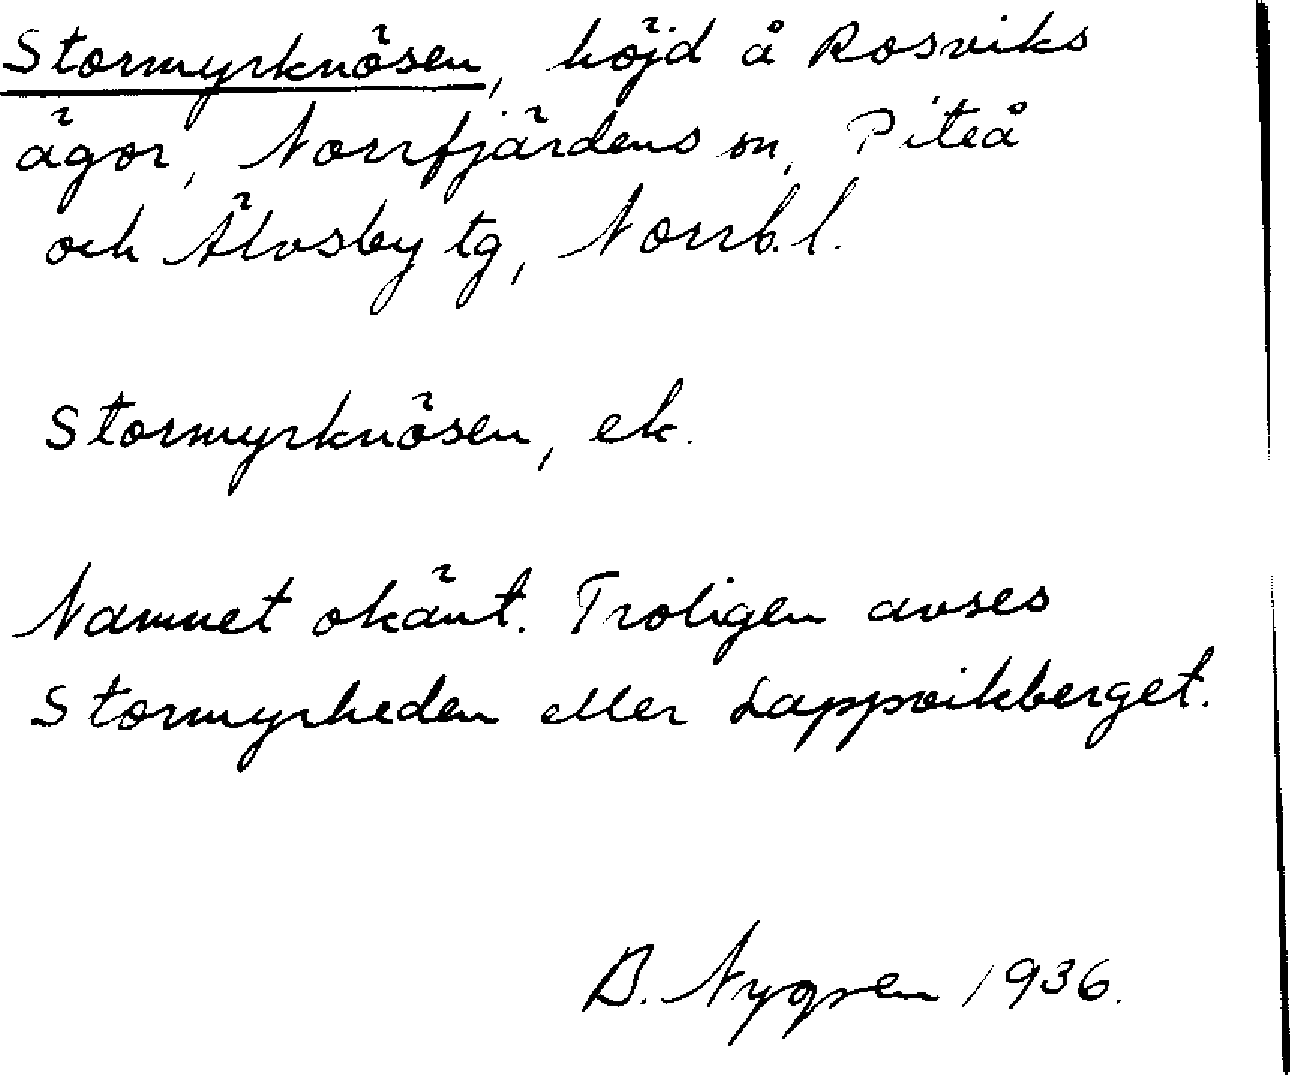 Stormyrknösen, höjd å Rosviks
ägor, Norrfjärdens sn, Piteå
och Älvsby tg, Norrb. l.
Stormyrknösen, ek.
Namnet okänt. Troligen avses
Stormyrheden eller Lappvikberget.
B. Nygren 1936.